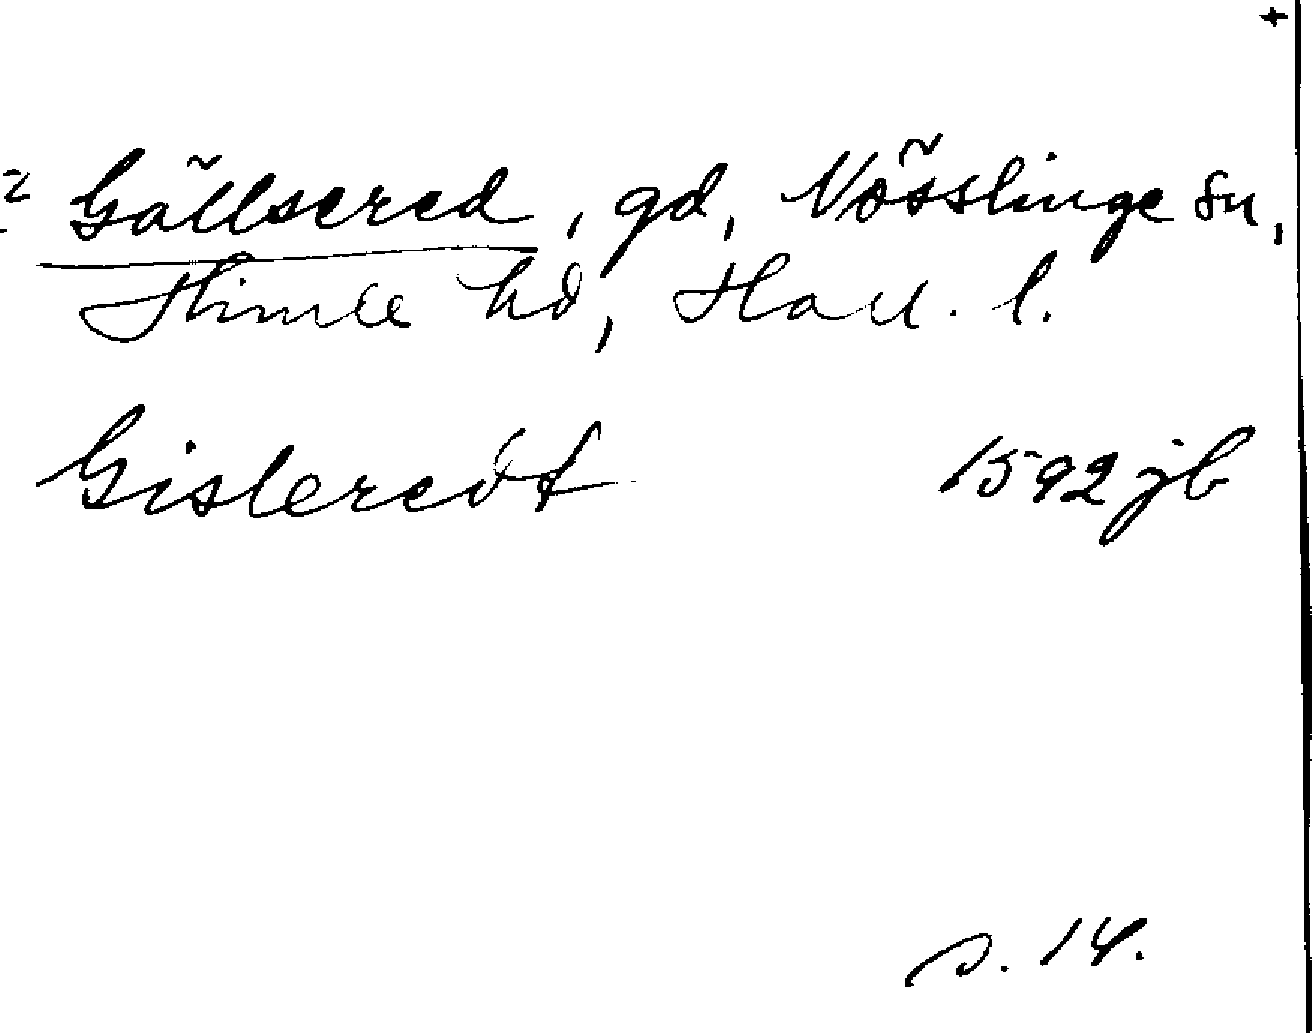 Gällsered, gd, Nösslinge sn,
Himle hd, Hall. l.
Gisleredt 1592 jb
s. 14.